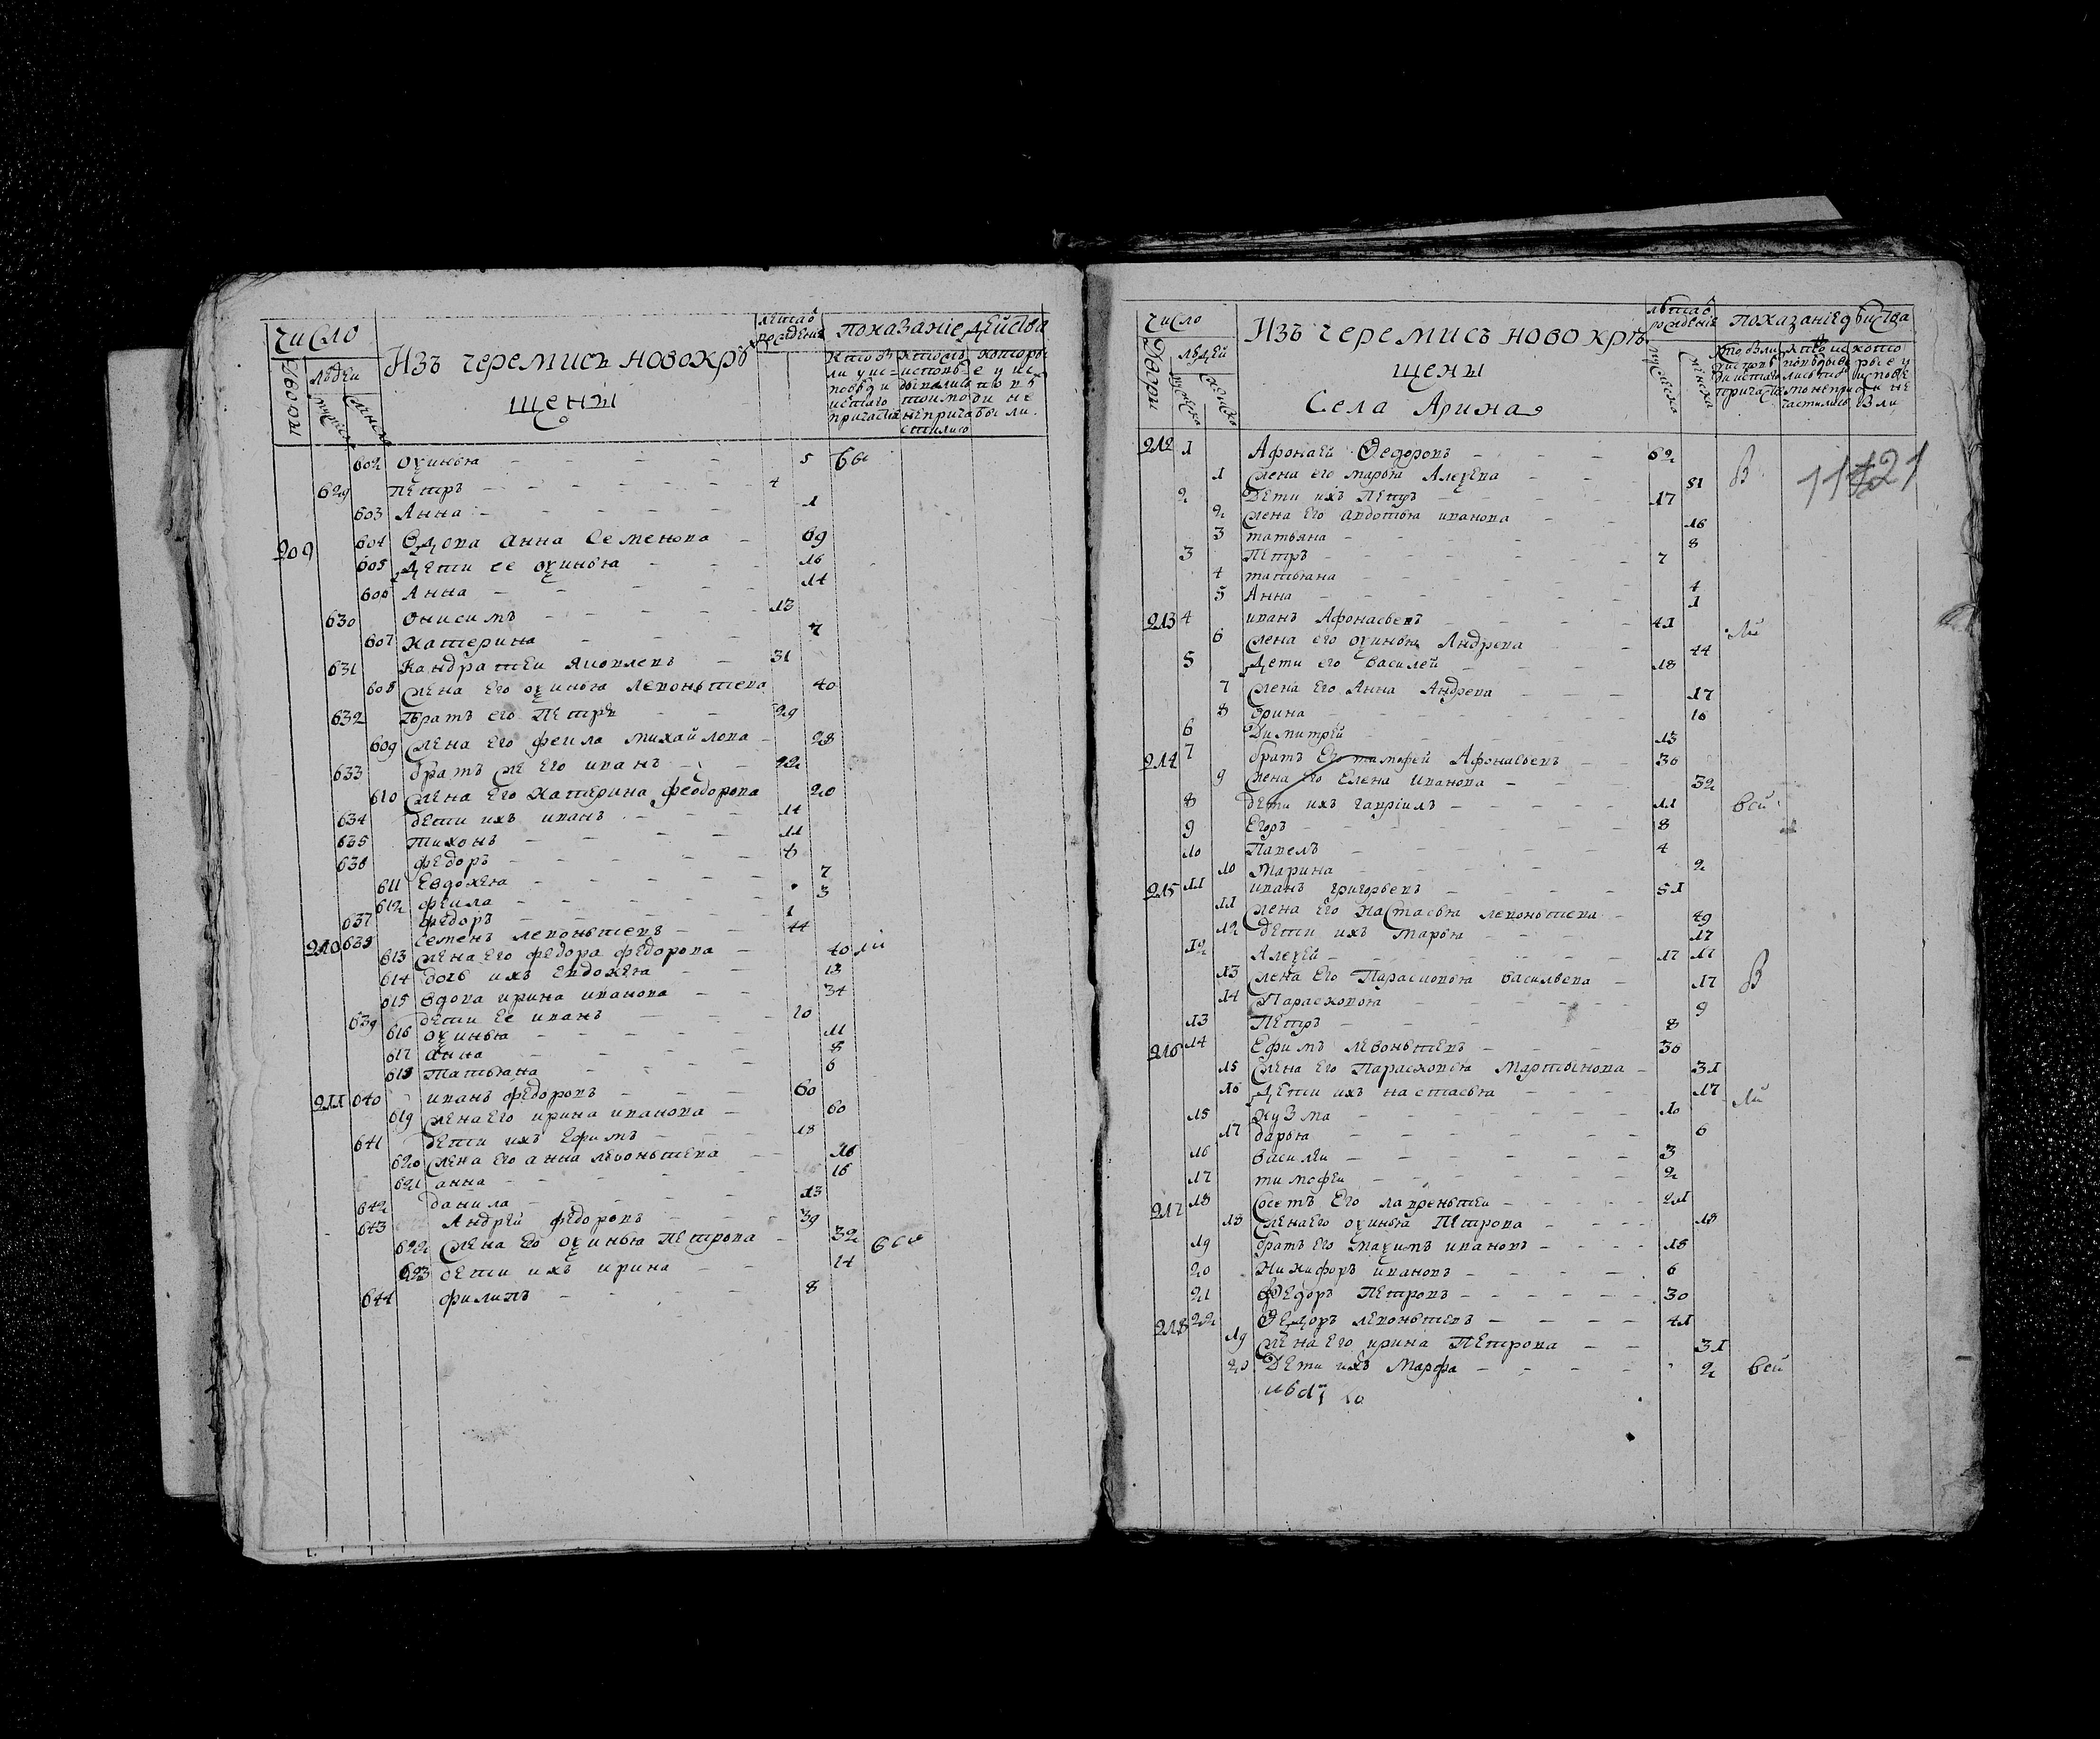 число
Изъ черемисъ новокрѣ
щены
602 оѯинья 5
629 петръ 4
603 Анна 1
209 604 Вдова анна Семенова 69
605 дети ее оѯинья 16
606 Анна 14
630 Онисимъ 13
607 катерина 7
631 Кандратеи Яковлевъ 31
608 жена его оѯинья левонтьева 40
632 братъ его Петръ 29
609 жена его феила михайлова 28
633 братъ же его иванъ 22
610 жена его катерина феодорова 20
634 дети ихъ иванъ 14
635 тихонъ 11
636 федоръ 8
611 Евдокея 7
612 феила 3
637 федоръ 1
210 638 семенъ левонтьевъ 44
613 жена его федора федорова 40
614 дочь ихъ евдокея 12
615 вдова ирина иванова 34
639 дети ее иванъ 20
616 оѯинья 11
617 анна 8
618 татьяна 6
211 640 иванъ федоровъ 60
619 жена его ирина иванова 60
641 дети ихъ Ефимъ 18
620 жена его анна левонтьева 16
621 анна 16
642 данила 13
643 Андрей федоровъ 39
622 жена его оѯинья петрова 32
623 дети ихъ ирина 14
644 филипъ 8
число
Изъ черемисъ новокрѣ
щены
Села Арина
212 1 Афонасеи Федоровъ 62
1 жена его марья Алеѯева 81
2 дети ихъ петръ 17
2 жена его авдотья иванова 16
3 татьяна 8
3 петръ 7
4 татьяна 4
5 Анна 1
213 4 иванъ Афонасьевъ 41
6 жена его оѯинья Андрева 44
5 дети его василей 18
7 жена его Анна Андрева 17
8 орина 16
6 Димитрей 13
214 7 братъ его тимофей Афонасьевъ 36
9 жена его елена иванова 32
8 дети ихъ гаврiилъ 11
9 егоръ 8
10 Павелъ 4
10 Марина 2
215 11 иванъ григорьевъ 51
11 жена его настасья левонтьева 49
12 дети ихъ Марья 17
12 Алеѯей 17
13 жена его Парасковья васильева 17
14 Парасковья 9
13 Петръ 8
216 14 Ефимъ левонтьевъ 36
15 жена его Парасковья Мартынова 31
16 дети ихъ настасья 17
15 кузма 10
17 дарья 6
16 василеи 3
17 тимофеи 2
217 18 Сосетъ его лаврентеи 21
18 жена его оѯинья Петрова 18
19 братъ его Маѯимъ ивановъ 15
20 Никифоръ ивановъ 6
21 Федоръ Петровъ 30
218 22 Федоръ левонтьевъ 41
19 жена его ирина петрова 31
20 Дети ихъ Марфа 2